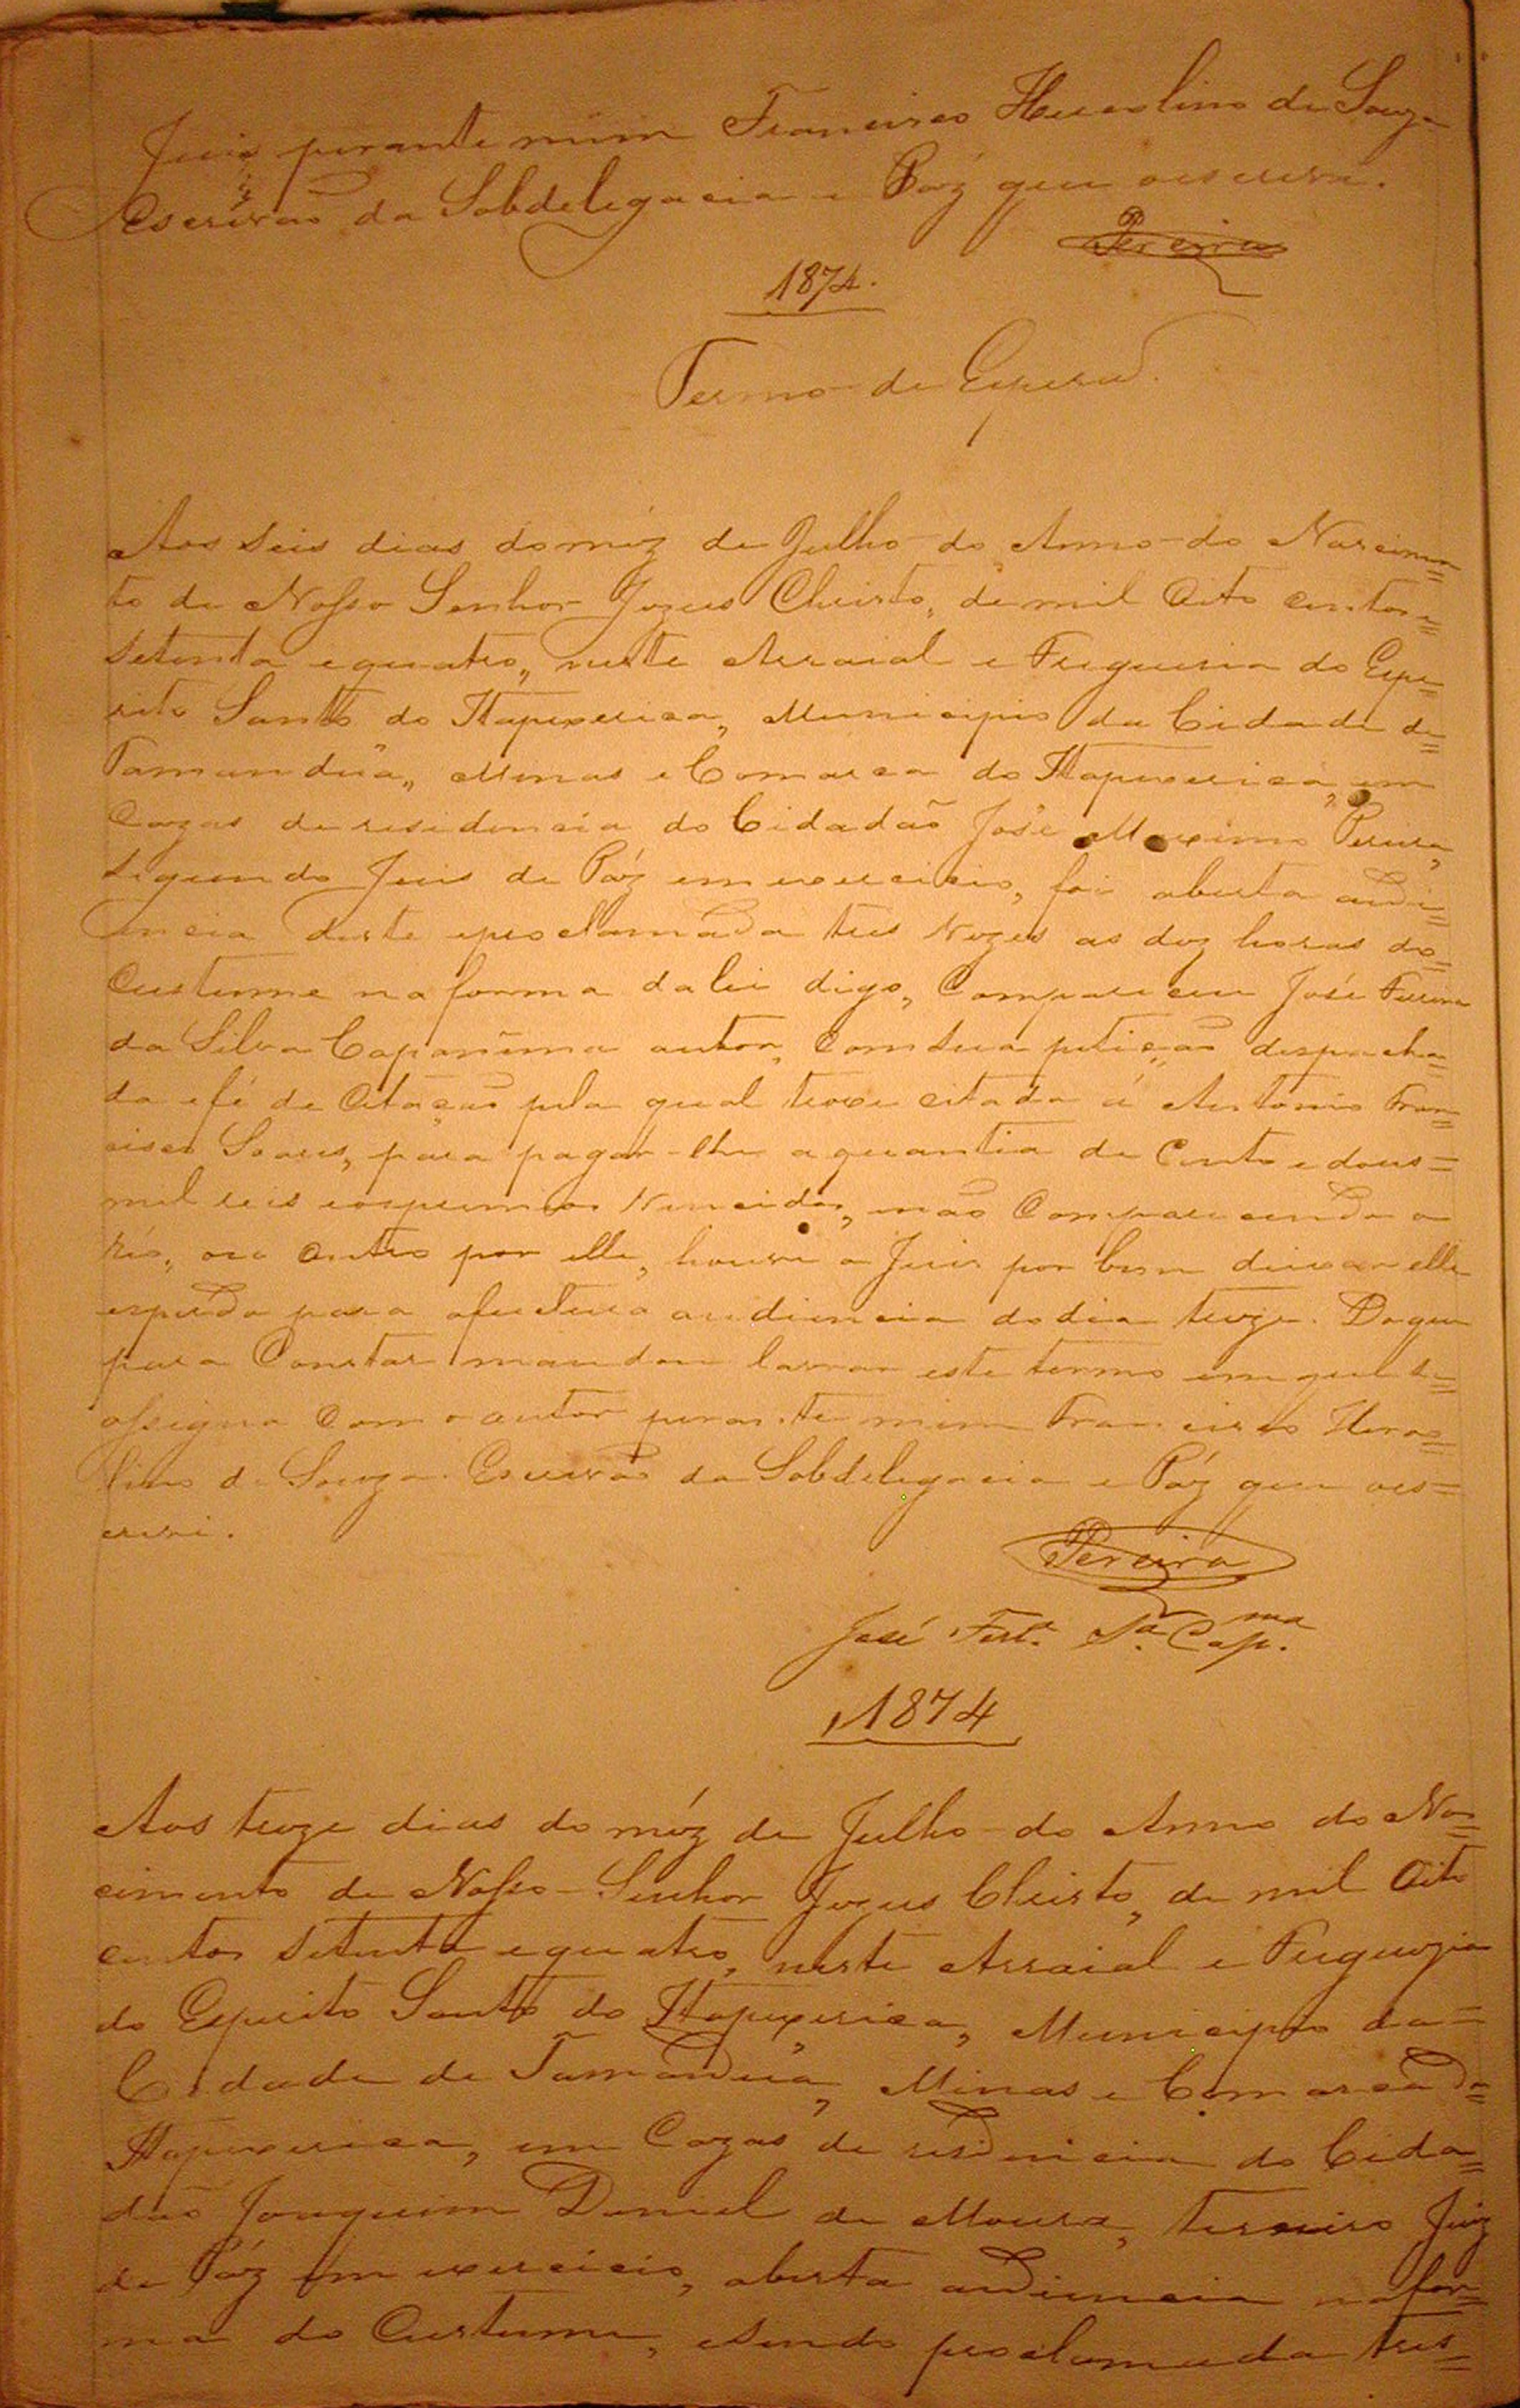 Juis perante mim Francisco Heraclino de Souza
Escrivão da Sobdelegacia e Páz que oescrevi.
Pereira
1874.
Termo de Espera
Aos seis dias do mêz de Julho do Anno do Nascimen=
to de Nosso Senhor Jezus Christo, de mil Oito centos e=
setenta e quatro, neste Arraial e Freguesia do Espi=
rito Santo do Itapixirica, Municipio da Cidade de=
Tamanduá, Minas e Comarca do Itapixirica, em
Cazas de residencia do Cidadão José Maximo Pereira,
segundo Juis de Páz em exercicio, foi aberta audi=
encia deste e proclamada tres Vezes as dez horas do=
Custume na forma da lei digo, Compareceu José Ferreira
da Silva Capanima autor, Com sua petição despacha=
da e fé de Citação pela qual troxe citada á Antonio Fran=
cisco Soares, para pagar-lhe a quantia de Cento e dous=
mil reis e os premios Vencidos, não Comparecendo o
Réo, ou Outro por elle, houve o Juis por bem deixar elle
esperado para a fuctura audiencia do dia treze. Do que
para Constar mandou lavrar este termo em que se=
assigna Com o autor perante mim Francisco Herac=
lino de Souza Escrivão da Sobdelegacia e Páz que oes=
crevi.
Pereira
José Ferr.ª S.ª Cap.ma
1874
Aos treze dias do mêz de Julho do Anno do Nas=
cimento de Nosso Senhor Jezus Christo, de mil Oito
centos setenta e quatro, neste Arraial e Freguezia
do Espirito Santo do Itapixirica, Municipio da=
Cidade de Tamanduá, Minas e Comarca do=
Itapixirica, em Cazas de residencia do Cida=
dão Joaquim Daniel de Moura, terceiro Juiz
de Páz em exercicio, aberta audiencia na for=
ma do Custume, e sendo proclamada tres=